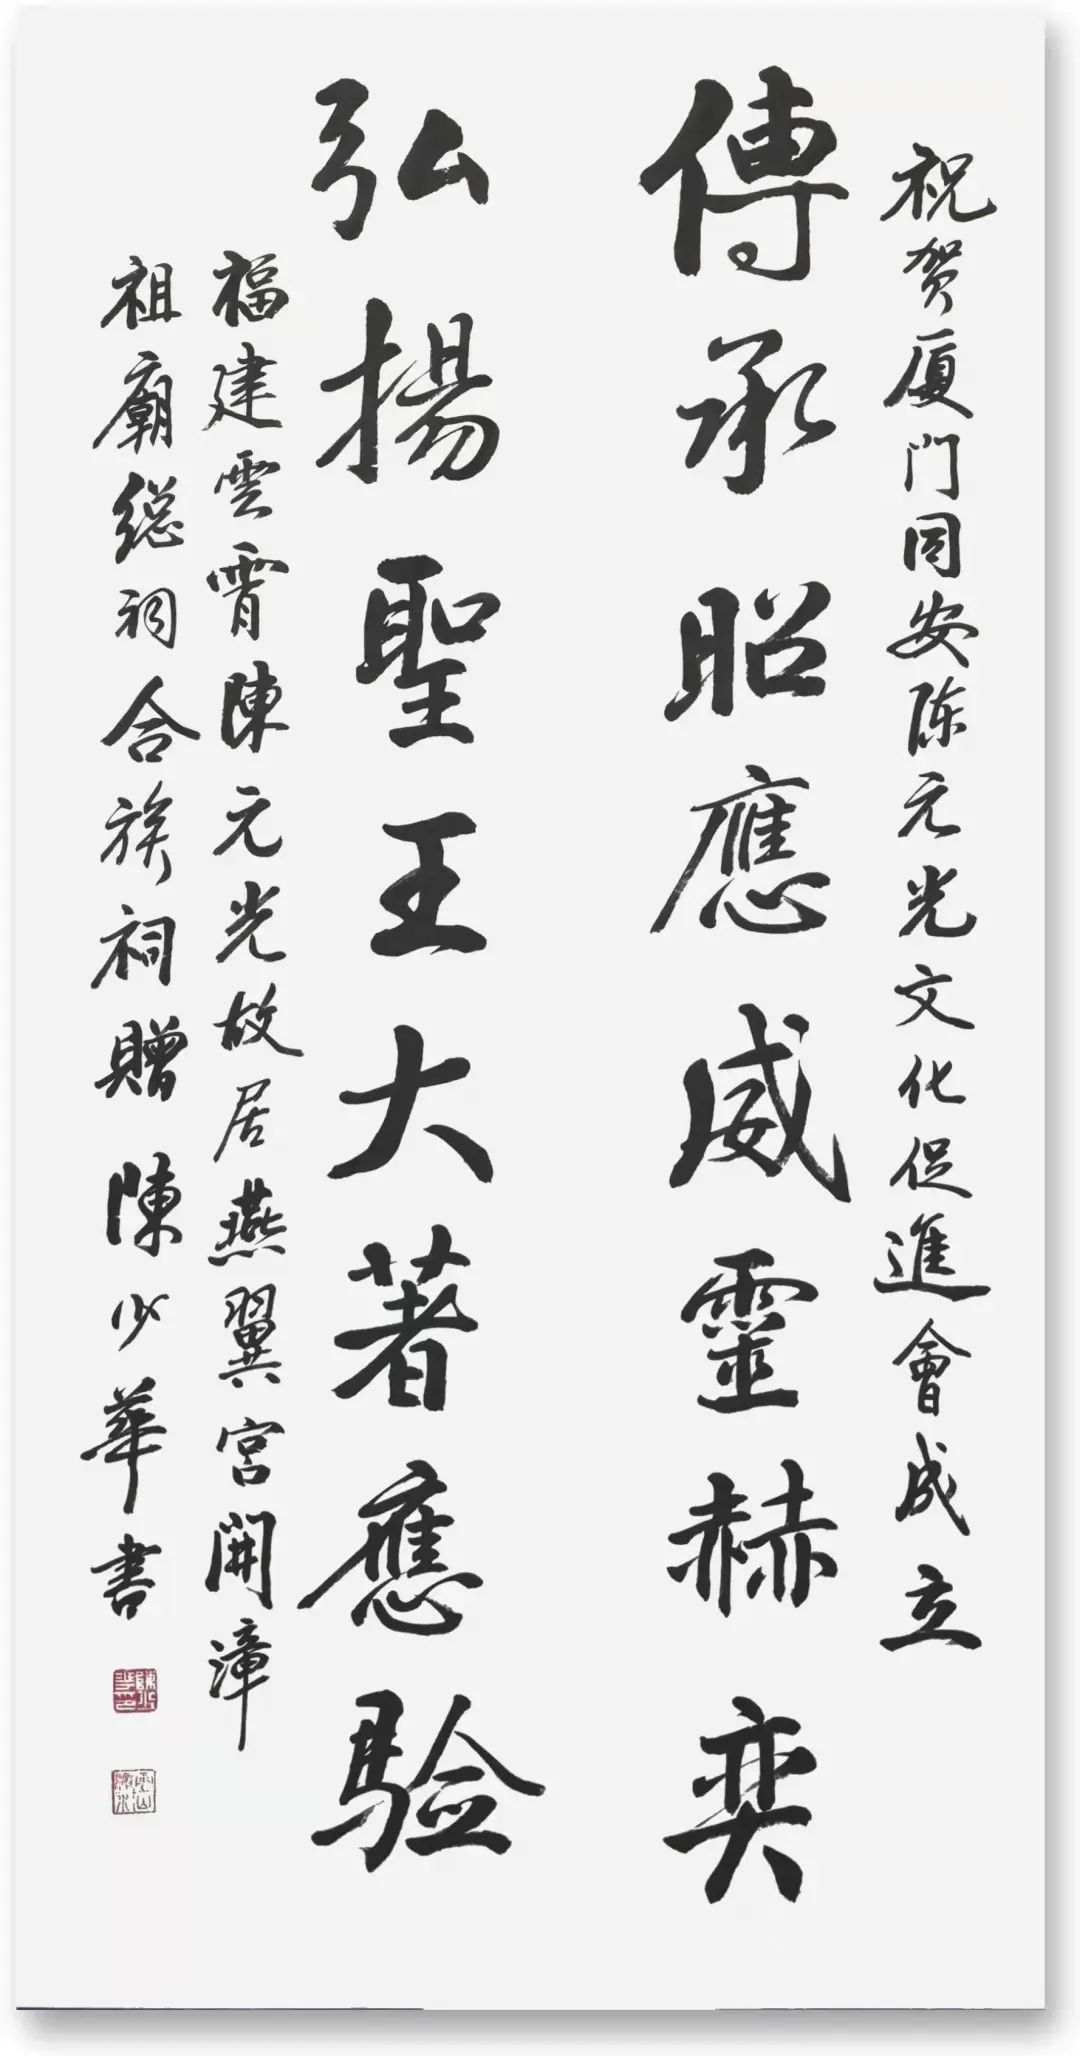 祝贺厦门同安陈元光文化促進會成立
傳承昭應威靈赫奕
弘揚聖王大著應验
福建雲霄陳元光故居燕翼宮開漳
祖廟総祠合族祠贈 陳少華書